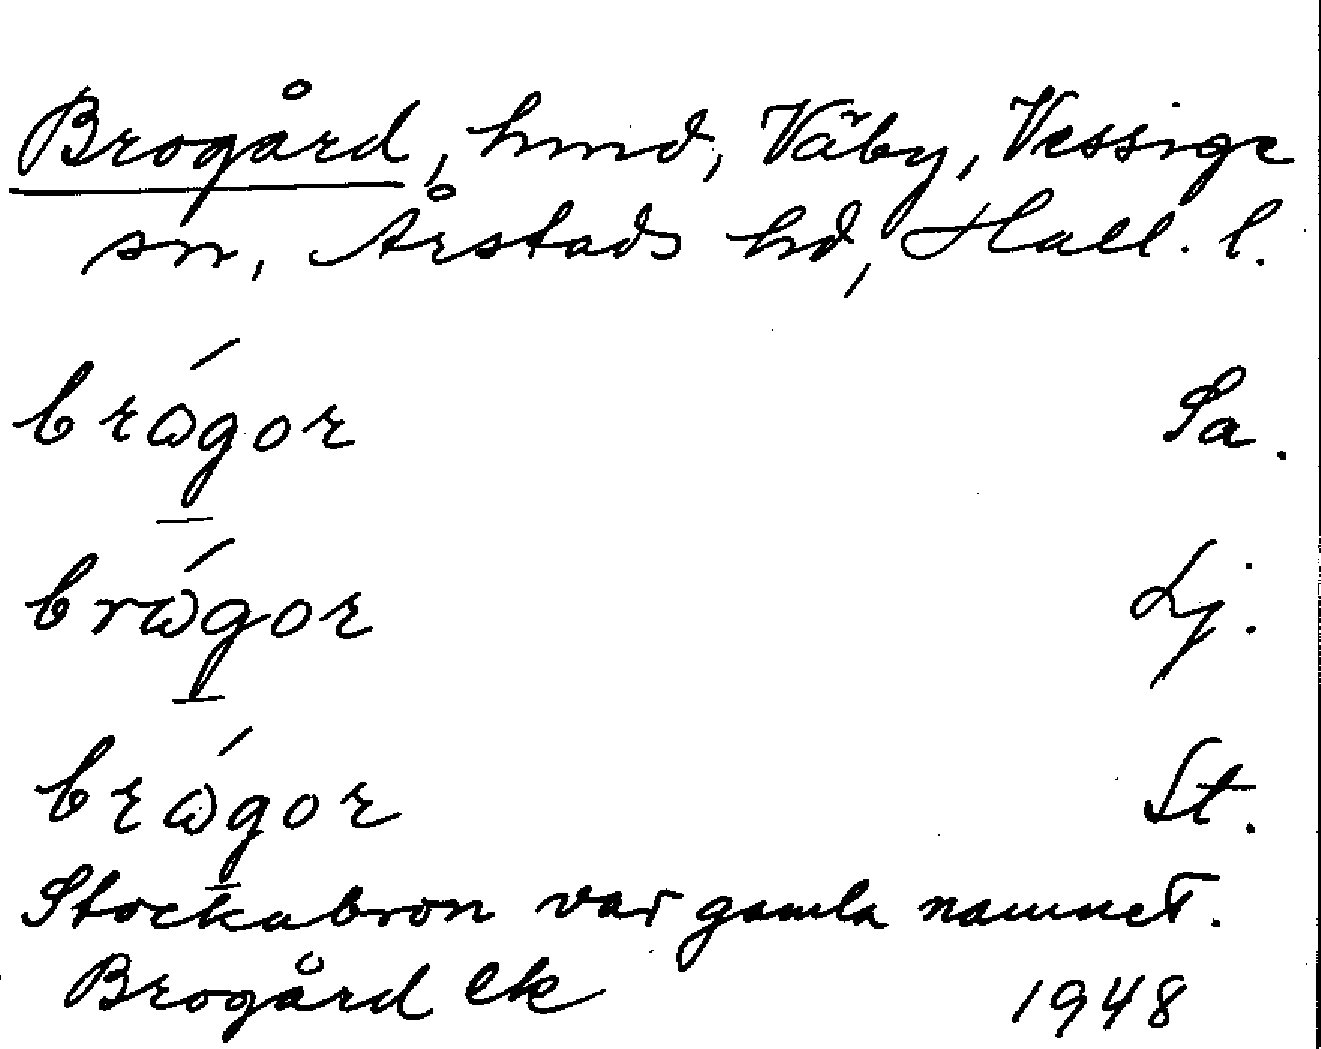 Brogård, hmd, Väby, Vessige
sn, Årstads hd, Hall. l.
brǻgor Sa.
brǻgor Lj.
brǻgor St.
Stockabron var gamla namnet.
Brogård ek 1948